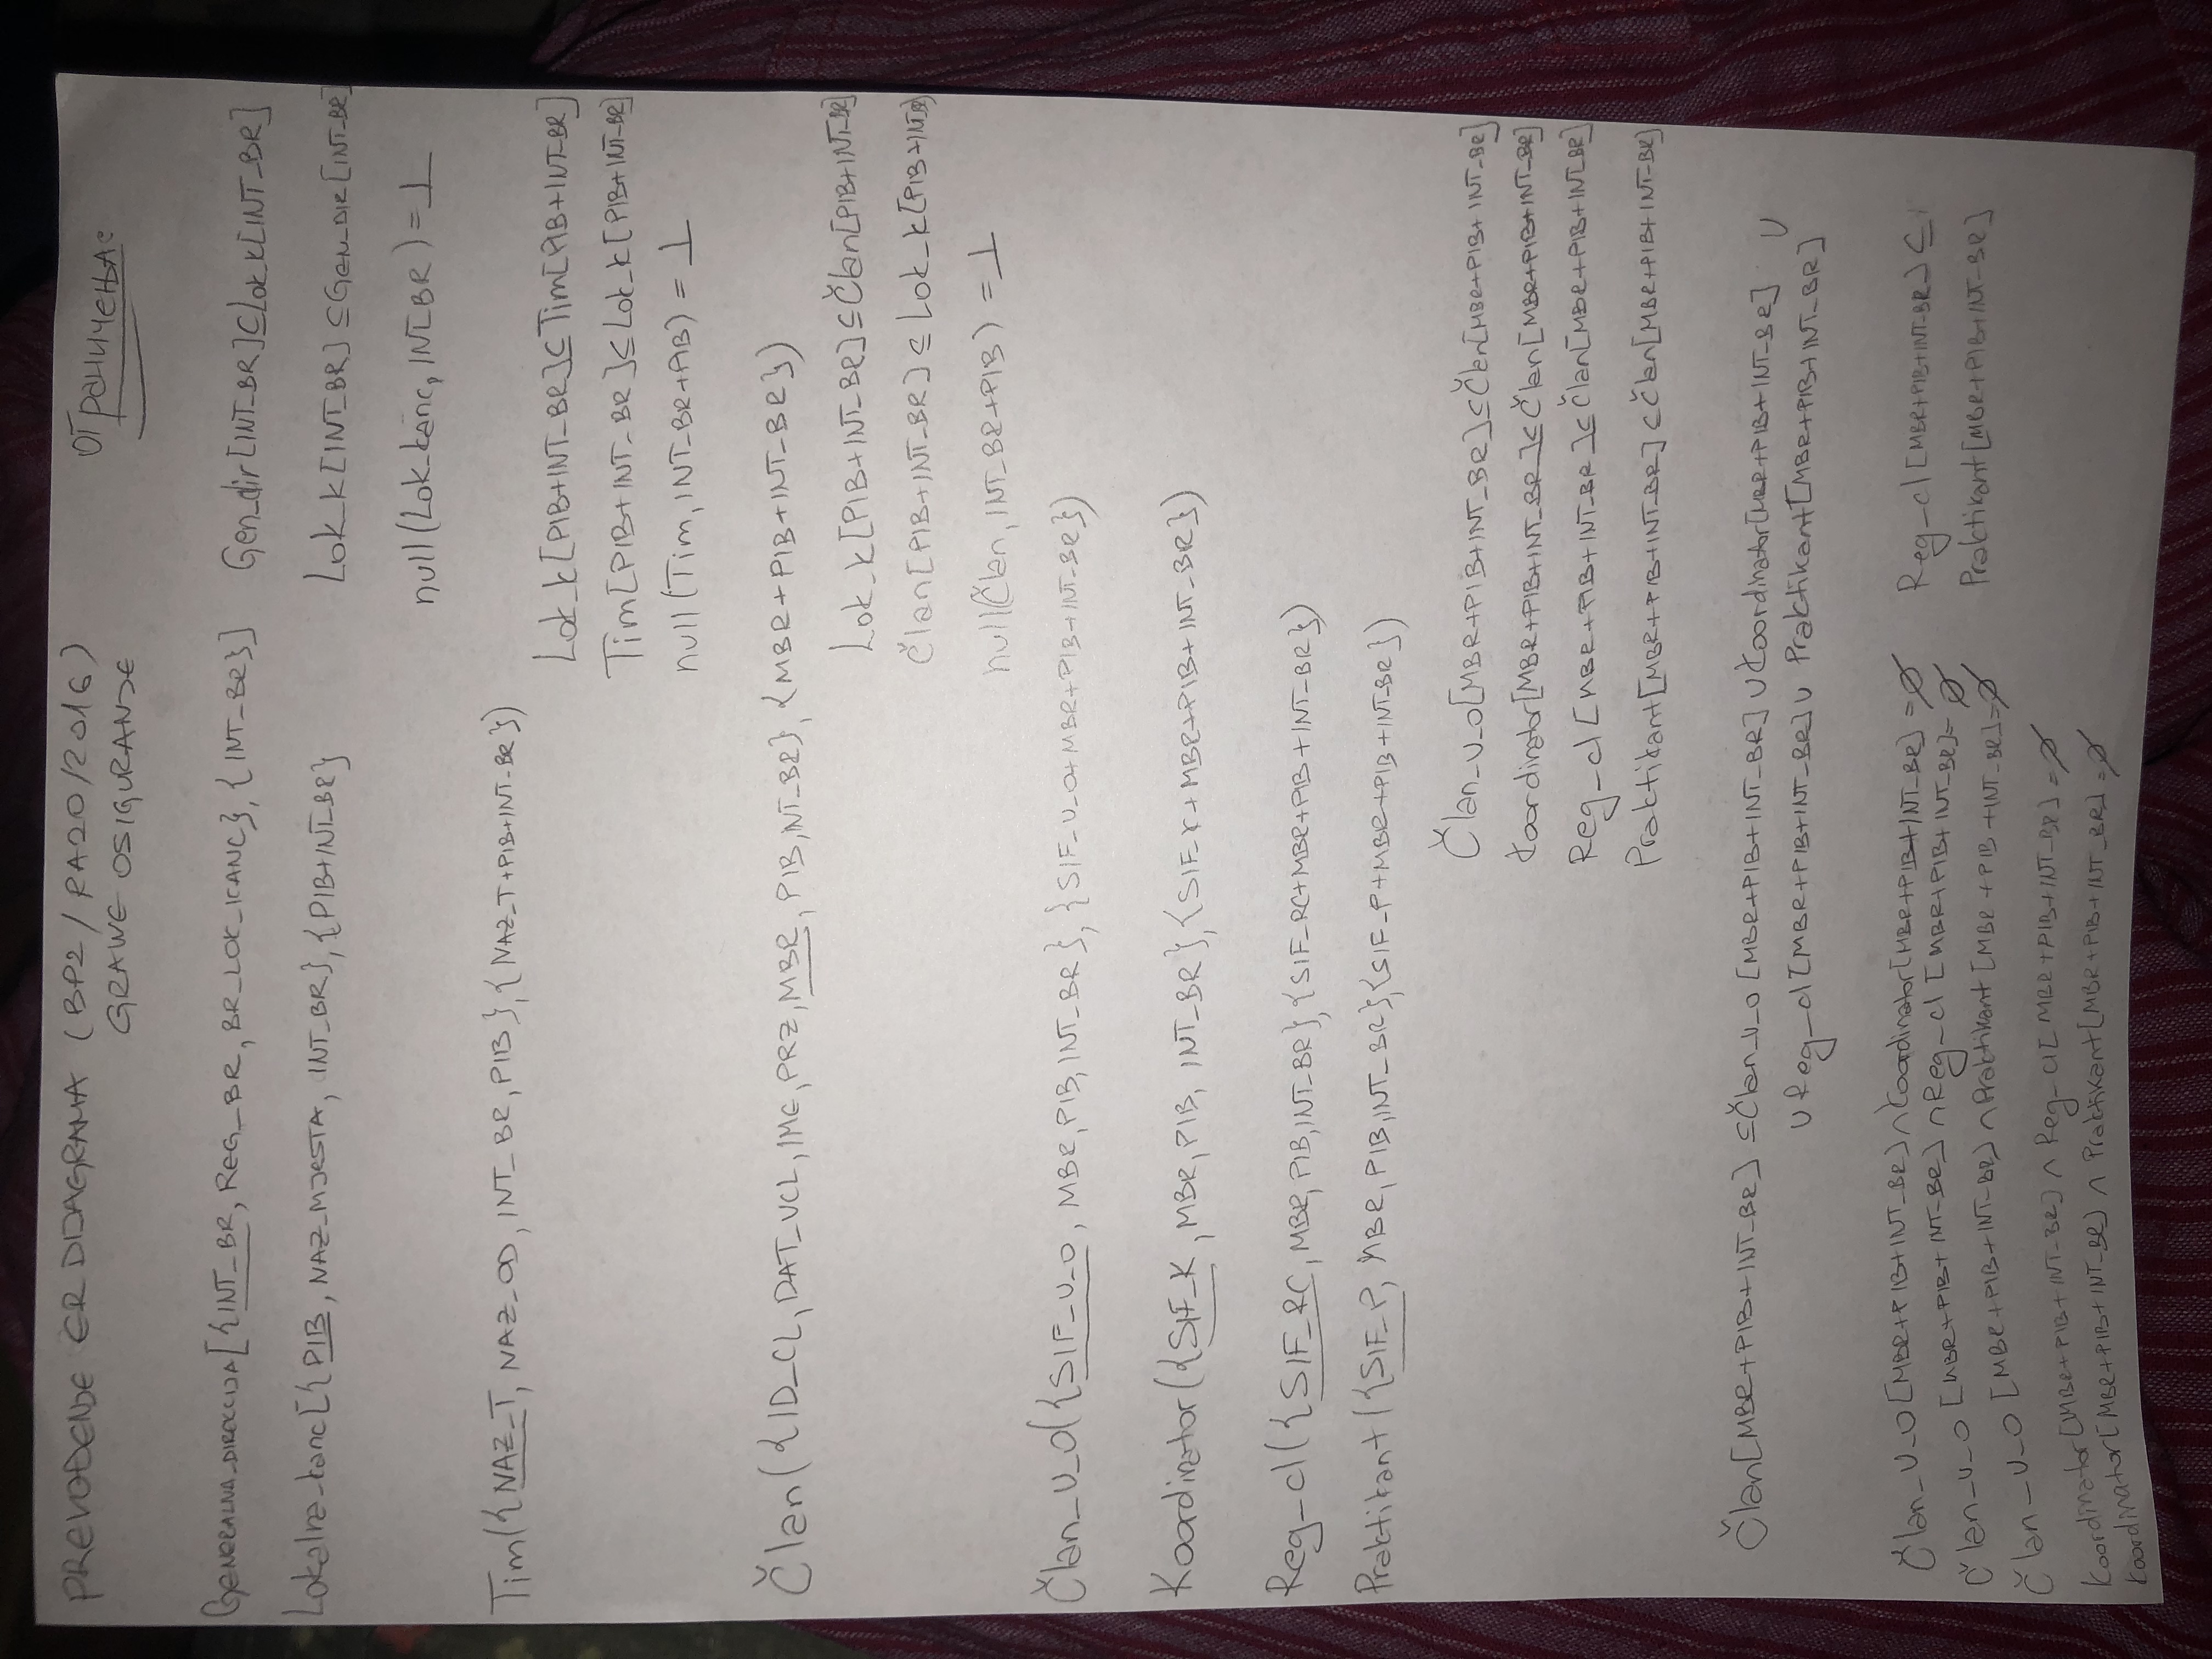 PREVOĐENJE ER DIJAGRAMA (BP2 / RA20/2016)
GRAWE OSIGURANJE
ограничења:
GENERALNA_DIREKCIJA[{INT_BR, REG_BR, BR_LOK_KANC}, {INT_BR}]
Gen_dir[INT_BR]⊆Lok_k[INT_BR]
Lokalna_kanc[{PIB, NAZ_MJESTA, INT_BR}, {PIB+INT_BR}
Lok_k[INT_BR]⊆GEN_DIR[INT_BR]
null(Lok_kanc, INT_BR)=⊥
Tim({NAZ_T, NAZ_OD, INT_BR, PIB}, {NAZ_T+PIB+INT_BR})
Lok_k[PIB+INT_BR]⊆Tim[PIB+INT_BR]
Tim[PIB+INT_BR]⊆Lok_k[PIB+INT_BR]
null(Tim, INT_BR+PIB) = ⊥
Član({ID_CL, DAT_UCL, IME, PRZ, MBR, PIB, INT_BR}, {MBR+PIB+INT_BR})
Lok_k[PIB+INT_BR]⊆Član[PIB+INT_BR]
Član[PIB+INT_BR]⊆Lok_k[PIB+INT_BR]
null(Član, INT_BR+PIB) =⊥
Član_U_O({SIF_U_O, MBR, PIB, INT_BR}, {SIF_U_O+MBR+PIB+INT_BR})
Koordinator({SIF_K, MBR, PIB, INT_BR}, {SIF_K+MBR+PIB+INT_BR})
Reg_cl({SIF_RC, MBR, PIB, INT_BR}, {SIF_RC+MBR+PIB+INT_BR})
Praktikant({SIF_P, MBR, PIB, INT_BR}, {SIF_P+MBR+PIB+INT_BR})
Član_U_O[MBR+PIB+INT_BR]⊆Član[MBR+PIB+INT_BR]
Koordinator[MBR+PIB+INT_BR]⊆Član[MBR+PIB+INT_BR]
Reg_cl[MBR+PIB+INT_BR]⊆Član[MBR+PIB+INT_BR]
Praktikant[MBR+PIB+INT_BR]⊂Član[MBR+PIB+INT_BR]
Član[MBR+PIB+INT_BR] ⊆Član_U_O[MBR+PIB+INT_BR]∪Koordinator[MBR+PIB+INT_BR] ∪
∪Reg_cl[MBR+PIB+INT_BR]∪ Praktikant[MBR+PIB+INT_BR]
Član_U_O[MBR+PIB+INT_BR]∩Koordinator[MBR+PIB+INT_BR]=∅
Član_U_O[MBR+PIB+INT_BR]∩Reg_cl[MBR+PIB+INT_BR]=∅
Član_U_O[MBR+PIB+INT_BR]∩Praktikant[MBR+PIB+INT_BR]=∅
Koordinator[MBR+PIB+INT_BR]∩Reg_cl[MBR+PIB+INT_BR]=∅
Koordinator[MBR+PIB+INT_BR]∩Praktikant[MBR+PIB+INT_BR]=∅
Reg_cl[MBR+PIB+INT_BR]⊆
Praktikant[MBR+PIB+INT_BR]